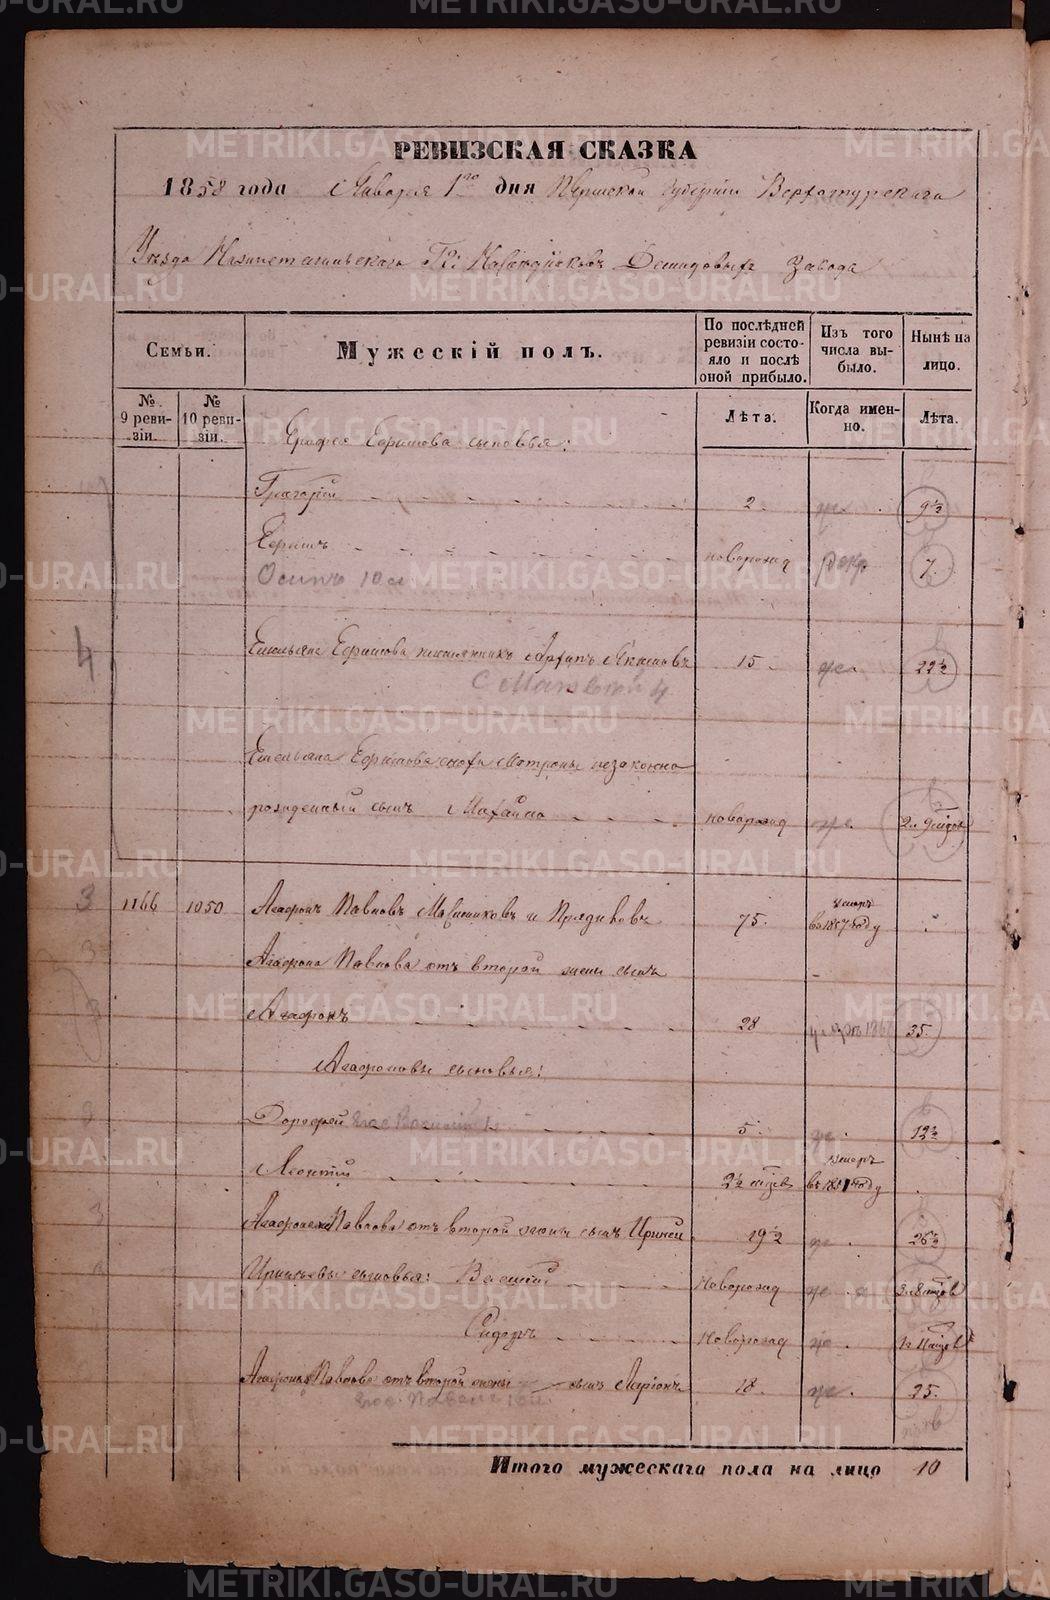 РЕВИЗСКАЯ СКАЗКА
1858 года Января 1го дня Пермской Губернии Верхотурскаго
Уѣзда Нижнетагильскаго Гг. Наследниковъ Демидовыхъ Завода
Семьи.
Мужескій полъ.
По послѣдней ревизіи состояло и послѣ оной прибыло.
Изъ того числа выбыло.
Нынѣ на лицо.
№ 9 ревизіи.
№ 10 ревизіи.
Лѣта.
Когда именно.
Лѣта.
Ерофея Ефимова сыновья:
Григорій 2. 9½
Ефимъ новорожд 7.
Осипъ 10 л
4 Емельяна Ефимова племянникъ Архипъ Якимовъ 15 22½
Емельяна Ефимова снохи Матроны незаконно
рожденный сынъ Михайло новорожд
3 1166 1050 Агафонъ Павловъ Мясниковъ и 75. умеръ въ 1857 году
3 Агафона Павлова отъ второй жены сынъ
Агафонъ 28 35.
Агафоновы сыновья:
Дорофей 5. 12½
Леонтій 2½ умеръ въ 1851 году
Агафона Павлова отъ второй жены сынъ Ириней 19½ 26½
Иринеевы сыновья: Василій Новорожд
Сидоръ Новорожд
Агафона Павлова отъ второй жены сынъ Ларіонъ 18. 25.
Итого мужескаго пола на лицо 10
METRIKI.GASO-URAL.RU